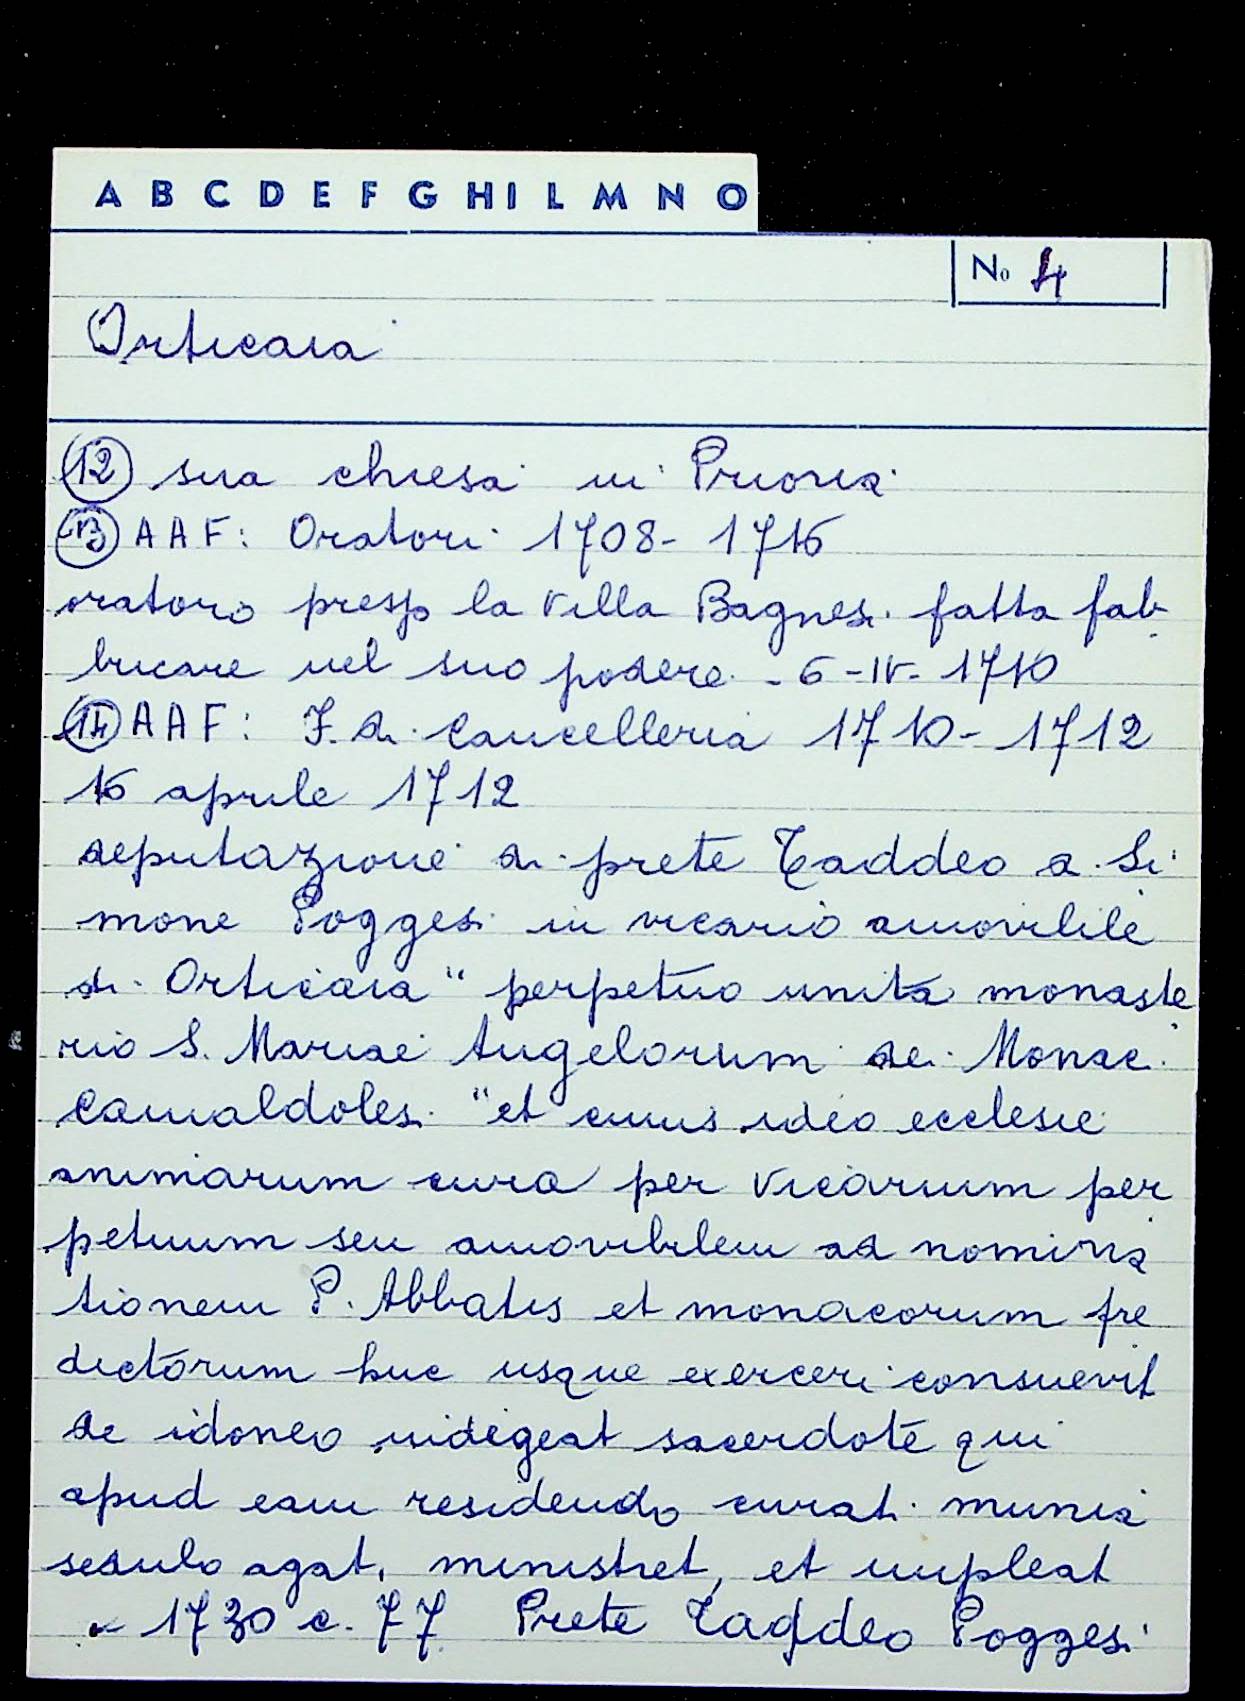 A B C D E F G H I L M N O
No 4
Orticaia
12 sua chiesa in Prioria
13 AAF: Oratori 1708-1716
oratorio presso la villa Bagnesi fatta fab-
bricare nel suo podere - 6-IV-1710
14 AAF: F. di Cancelleria 1710-1712
16 aprile 1712
deputazione di prete Taddeo di Si
mone Poggesi in vicario amovibile
di Orticaia "perpetuo unita monaste
rio S. Mariae Angelorum de Monac.
Camaldoles. "et cuius ideo ecclesie
animarum cura per vicarium per
petuum seu amovibilem ad nomina
tionem P. Abbatis et monacorum pre
dictorum huc usque exerceri consuevit
de idoneo indigeat sacerdote qui
apud eam residendo curati munia
sedulo agat, ministret, et impleat
1730 c. 77 Prete Taddeo Poggesi